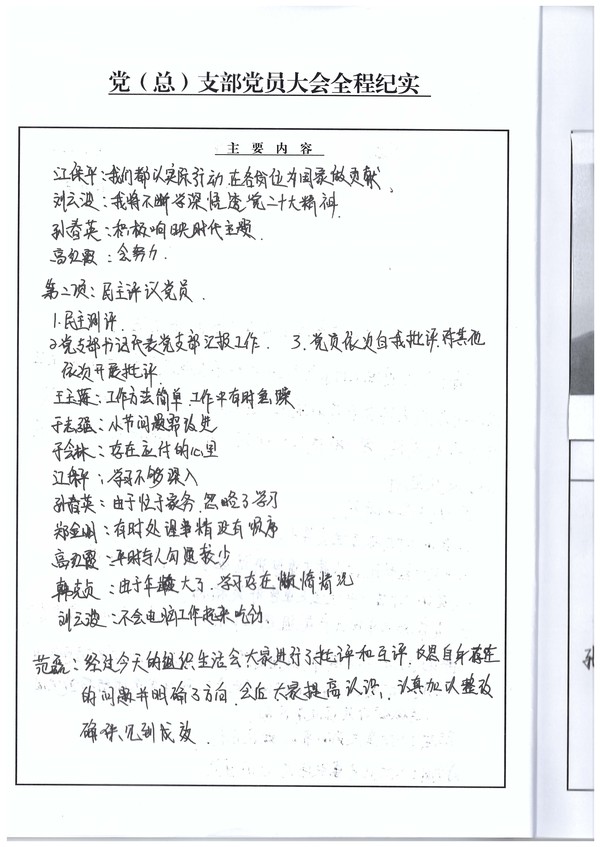 党（总）支部党员大会全程纪实
主要内容
江保平：我们都以实际行动,在各岗位为国家做贡献,
刘云波：我将不断学深悟透党二十大精神.
孙春英：积极响映时代主题.
高红霞：会努力.
第二项：民主评议党员.
1.民主测评.
2.党支部书记代表党支部汇报工作. 3.党员依次自我批评,对其他
依次开展批评.
王玉：工作方法简单,工作中有时急躁
于志强：小节问题需改进
于会林：存在应付的心里
江保平：学习不够深入
孙春英：由于忙于家务,忽略了学习
郑金刚：有时处理事情没有顺序
高红霞：平时与人沟通较少
韩克贞：由于年龄大了,学习存在懒惰情况
刘云波：不会电脑工作起来吃力.
范磊：经过今天的组织生活会大家进行了批评和互评,反思自身存在
的问题并明确了方向,会后大家提高认识,认真加以整改
确保见到成效.